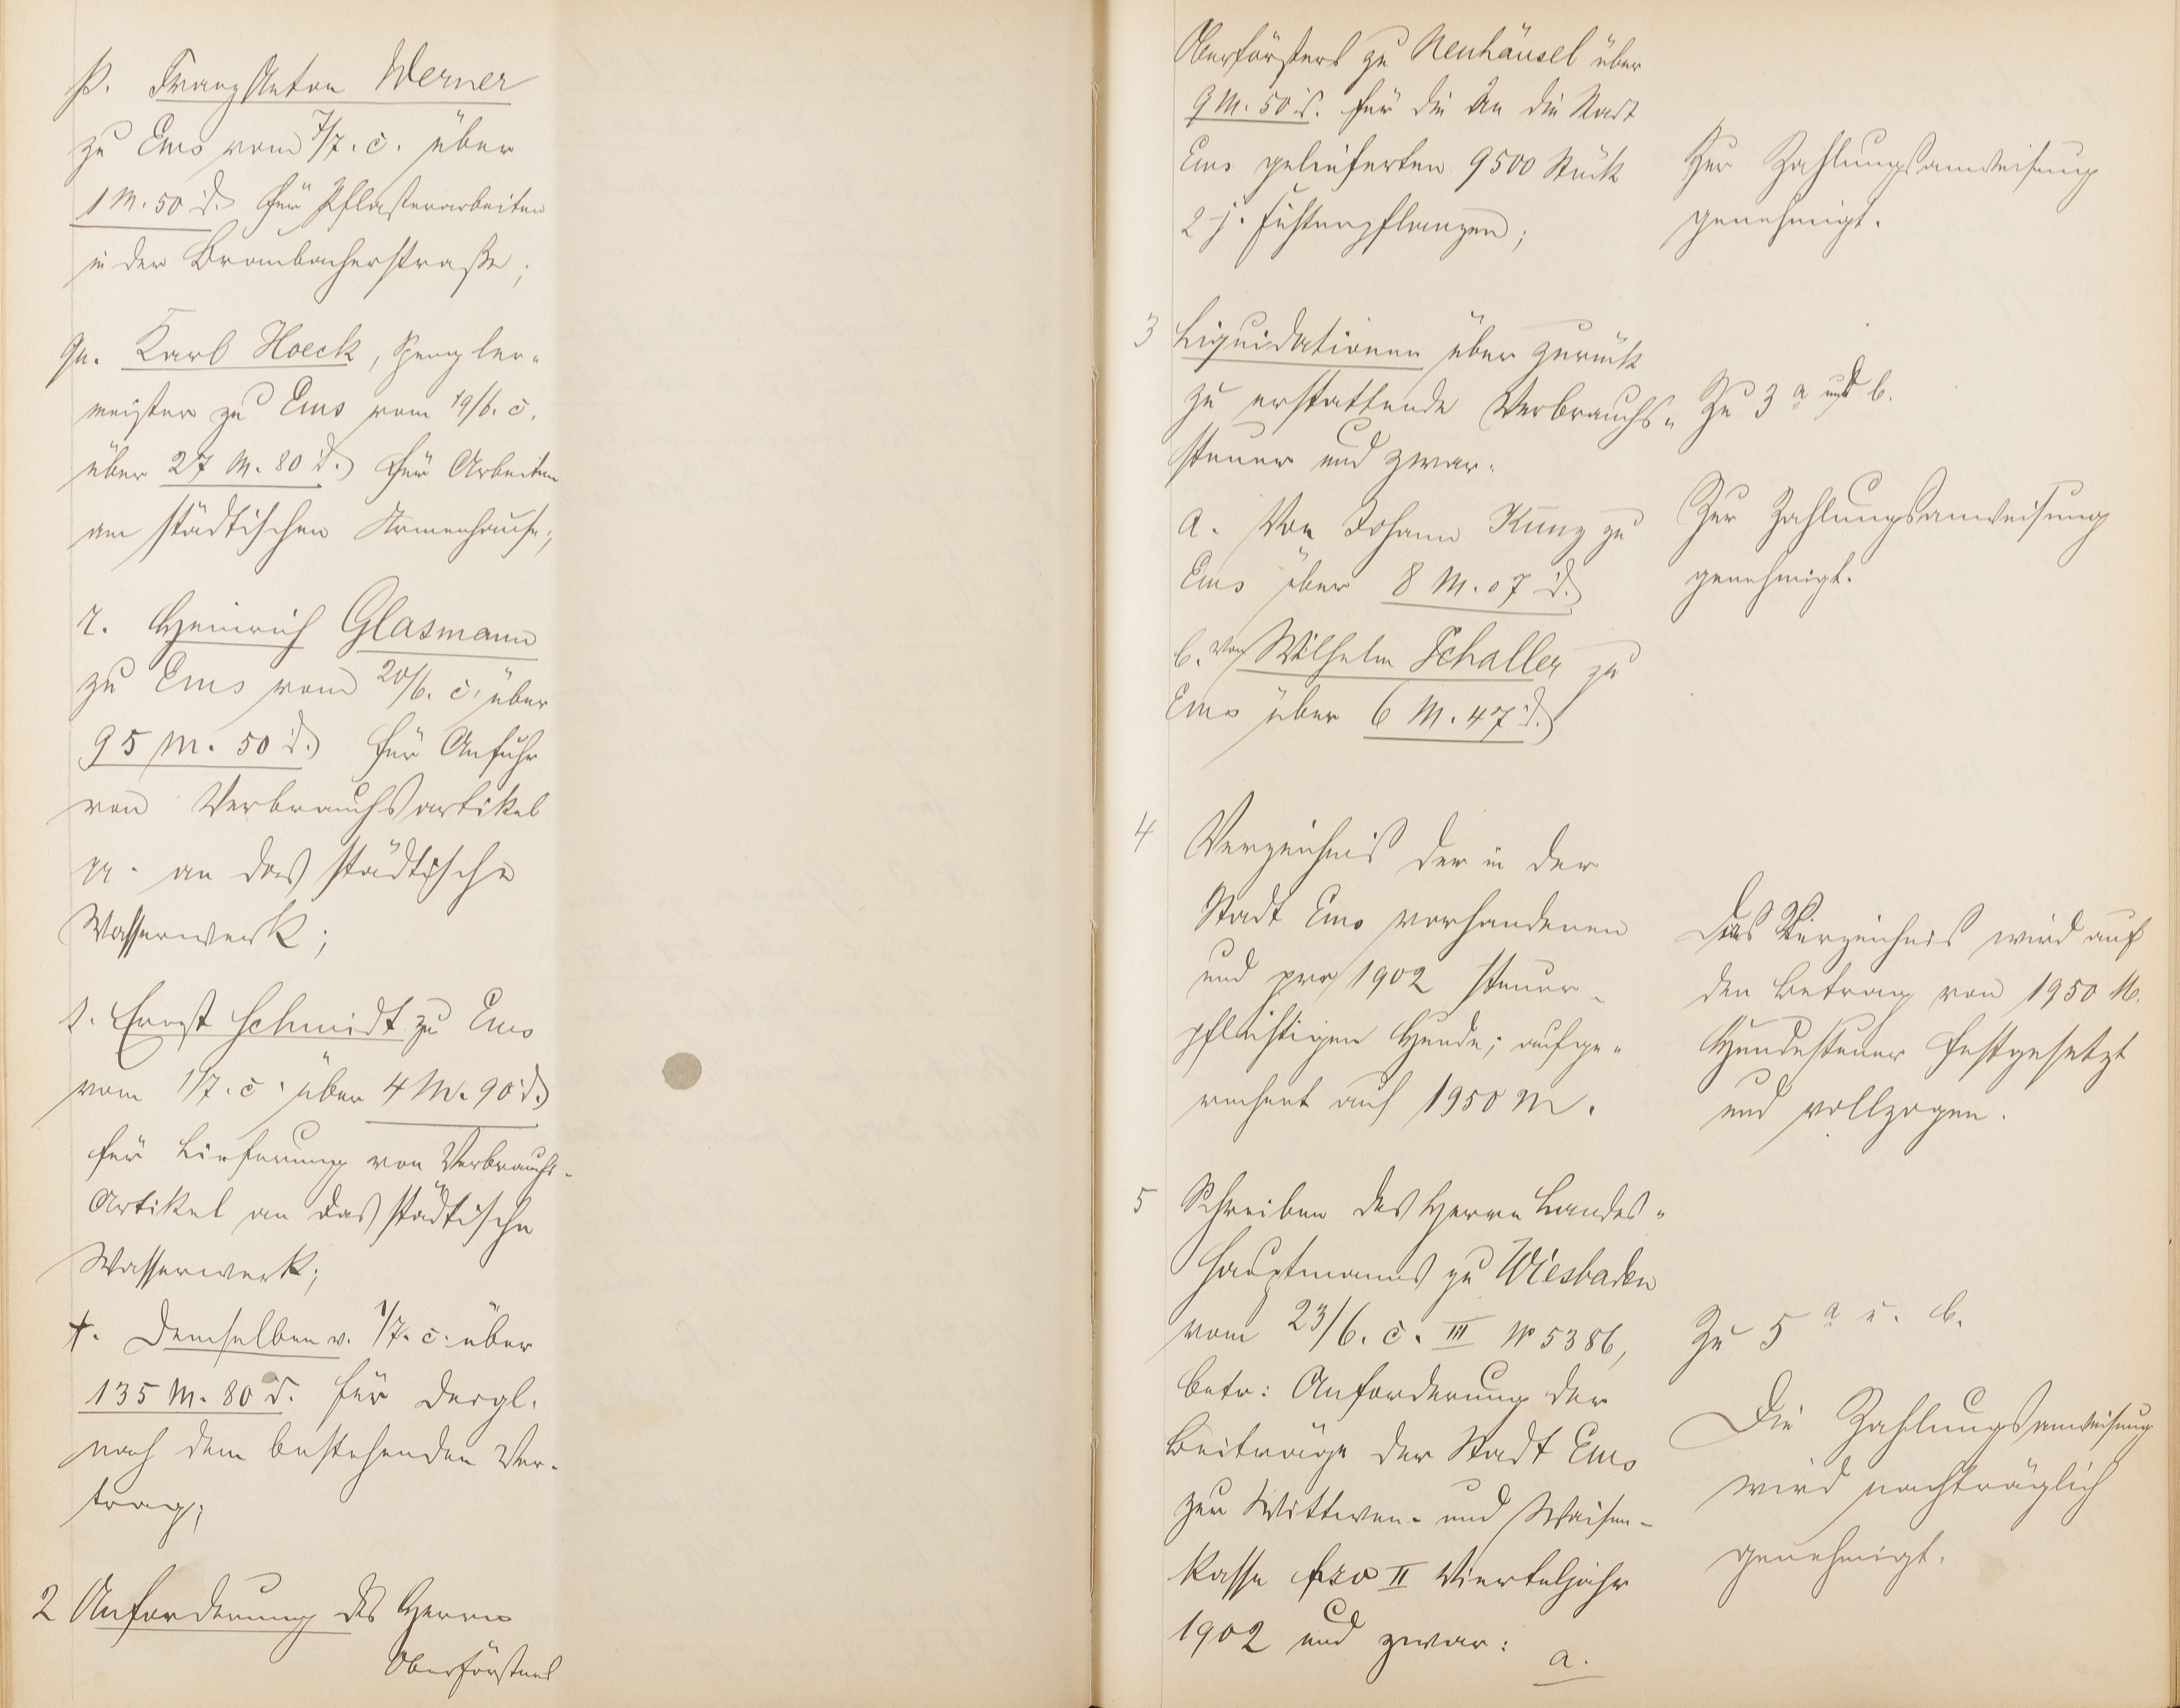 p. Franz Anton Werner
zu Ems vom 7/7. c. über
1 M. 50 d. für Pflasterarbeiten
in der Braubacherstraße;
qu. Karl Hoeck, Spengler-
meister zu Ems vom 19/6. c.
über 27 M. 80 d. für Arbeiten
am städtischen Armenhause;
r. Heinrich Glasmann
zu Ems vom 20/6. c. über
95 M. 50 d. für Anfuhr
von Verbrauchsartikel
pp. an das städtische
Wasserwerk;
s. Ernst Schmidt zu Ems
vom 1/7. c. über 4 M. 90 d.
für Lieferung von Verbrauchs-
Artikel an das städtische
Wasserwerk;
t. Demselben v. 1/7. c. über
135 M. 80 d. für dergl.
nach dem bestehenden Ver-
trag;
2 Anforderung des Herrn
Oberförsters
Oberförsters zu Neuhäusel über
9 M. 50 d. für die an die Stadt
Ems gelieferten 9500 Stück
2 j. Fichtenpflanzen;
Zur Zahlungsanweisung
genehmigt.
3 Liquidationen über zurück
zu erstattende Verbrauchs-
steuer und zwar.
a. Von Johann Kunz zu
Ems über 8 M. 07 d.
b. von Wilhelm Schaller zu
Ems über 6 M. 47 d.
Zu 3 a und b.
Zur Zahlungsanweisung
genehmigt.
4 Verzeichnis der in der
Stadt Ems vorhandenen
und pro 1902 steuer-
pflichtigen Hunde; aufge-
rechnet auf 1950 M.
Das Verzeichnis wird auf
den Betrag von 1950 M.
Hundesteuer festgesetzt
und vollzogen.
5 Schreiben des Herrn Landes-
hauptmanns zu Wiesbaden
vom 23/6. c. III No 5386,
betr: Anforderung der
Beiträge der Stadt Ems
zur Wittwen- und Waisen-
kasse pro II Vierteljahr
1902 und zwar:
a.
Zu 5 a u. b.
Die Zahlungsanweisung
wird nachträglich
genehmigt.